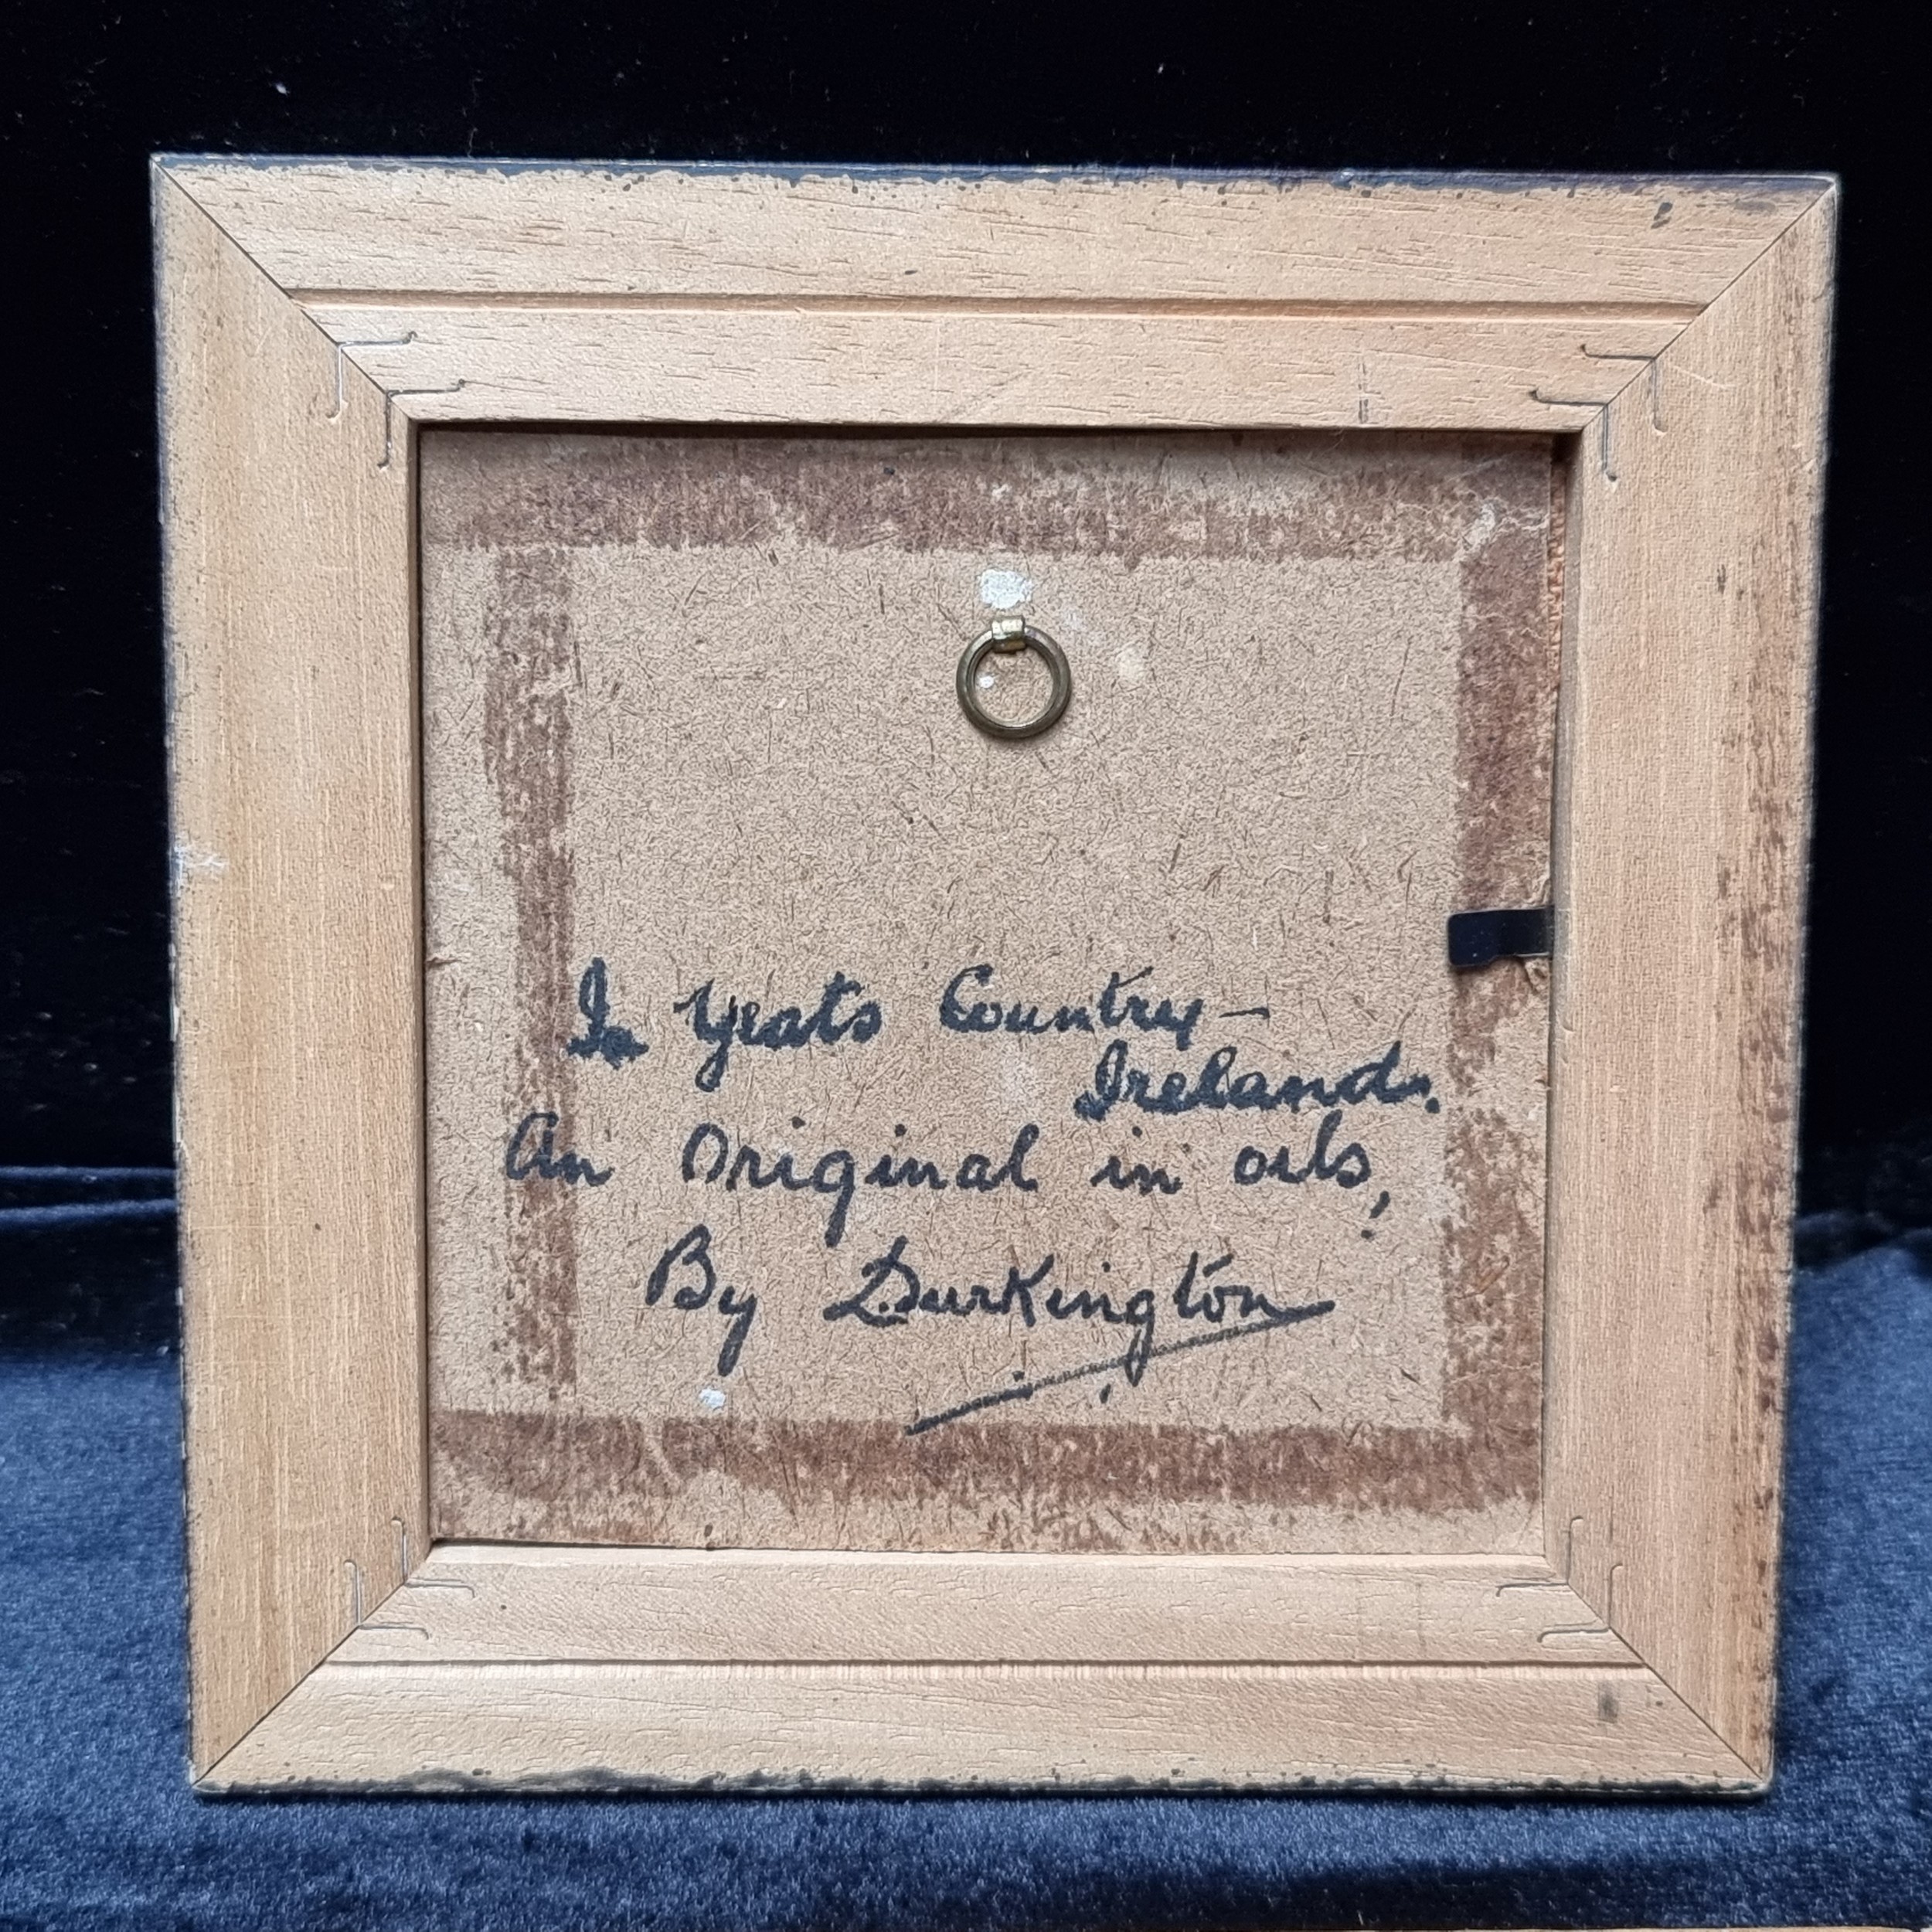 In Yeats Country —
Ireland.
An Original in oils,
By Durkington